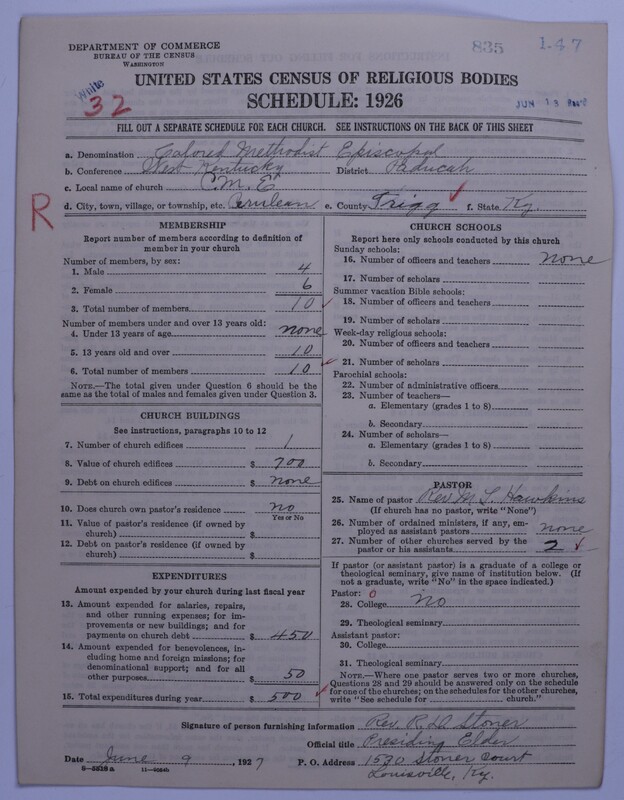 DEPARTMENT OF COMMERCE
BUREAU OF THE CENSUS
WASHINGTON
835
1-47
White
32
UNITED STATES CENSUS OF RELIGIOUS BODIES
SCHEDULE: 1926
JUN 13
FILL OUT A SEPARATE SCHEDULE FOR EACH CHURCH. SEE INSTRUCTIONS ON THE BACK OF THIS SHEET
a. Denomination Colored Methodist Episcopal
b. Conference West Kentucky District Paducah
c. Local name of church C. M. E.
R
d. City, town, village, or township, etc. Cerulean e. County Trigg ✓ f. State Ky.
MEMBERSHIP
Report number of members according to definition of
member in your church
Number of members, by sex:
1. Male 4
2. Female 6
3. Total number of members 10 ✓
Number of members under and over 13 years old:
4. Under 13 years of age none
5. 13 years old and over 10
6. Total number of members 10 ✓
NOTE.—The total given under Question 6 should be
same as the total of males and females given under Question 3.
CHURCH BUILDINGS
See instructions, paragraphs 10 to 12
7. Number of church edifices 1
8. Value of church edifices $ 700
9. Debt on church edifices $ none
10. Does church own pastor's residence? no
Yes or No
11. Value of pastor's residence (if owned by
church) $
12. Debt on pastor's residence (if owned by
church) $
EXPENDITURES
Amount expended by your church during last fiscal year
13. Amount expended for salaries, repairs,
and other running expenses; for im-
provements or new buildings; and for
payments on church debt $ 450
14. Amount expended for benevolences, in-
cluding home and foreign missions; for
denominational support; and for all
other purposes $ 50
15. Total expenditures during year $ 500 ✓
CHURCH SCHOOLS
Report here only schools conducted by this church
Sunday schools:
16. Number of officers and teachers none
17. Number of scholars
Summer vacation Bible schools:
18. Number of officers and teachers
19. Number of scholars
Week-day religious schools:
20. Number of officers and teachers
21. Number of scholars
Parochial schools:
22. Number of administrative officers
23. Number of teachers—
a. Elementary (grades 1 to 8)
b. Secondary
24. Number of scholars—
a. Elementary (grades 1 to 8)
b. Secondary
PASTOR
25. Name of pastor Rev. M. L. Hawkins
(If church has no pastor, write "None")
26. Number of ordained ministers, if any, em-
ployed as assistant pastors none
27. Number of other churches served by the
pastor or his assistants 2 ✓
If pastor (or assistant pastor) is a graduate of a college or
theological seminary, give name of institution below. (If
not a graduate, write "No" in the space indicated.)
Pastor: 0
28. College No
29. Theological seminary
Assistant pastor:
30. College
31. Theological seminary
NOTE.—Where one pastor serves two or more churches,
Questions 28 and 29 should be answered only on the schedule
for one of the churches; on the schedules for the other churches,
write "See schedule for church."
Signature of person furnishing information Rev. R. D. Stoner
Official title Presiding Elder
Date June 9, 1927 P. O. Address 1530 Stoner Court
8—5538a 11—9084b
Louisville, Ky.